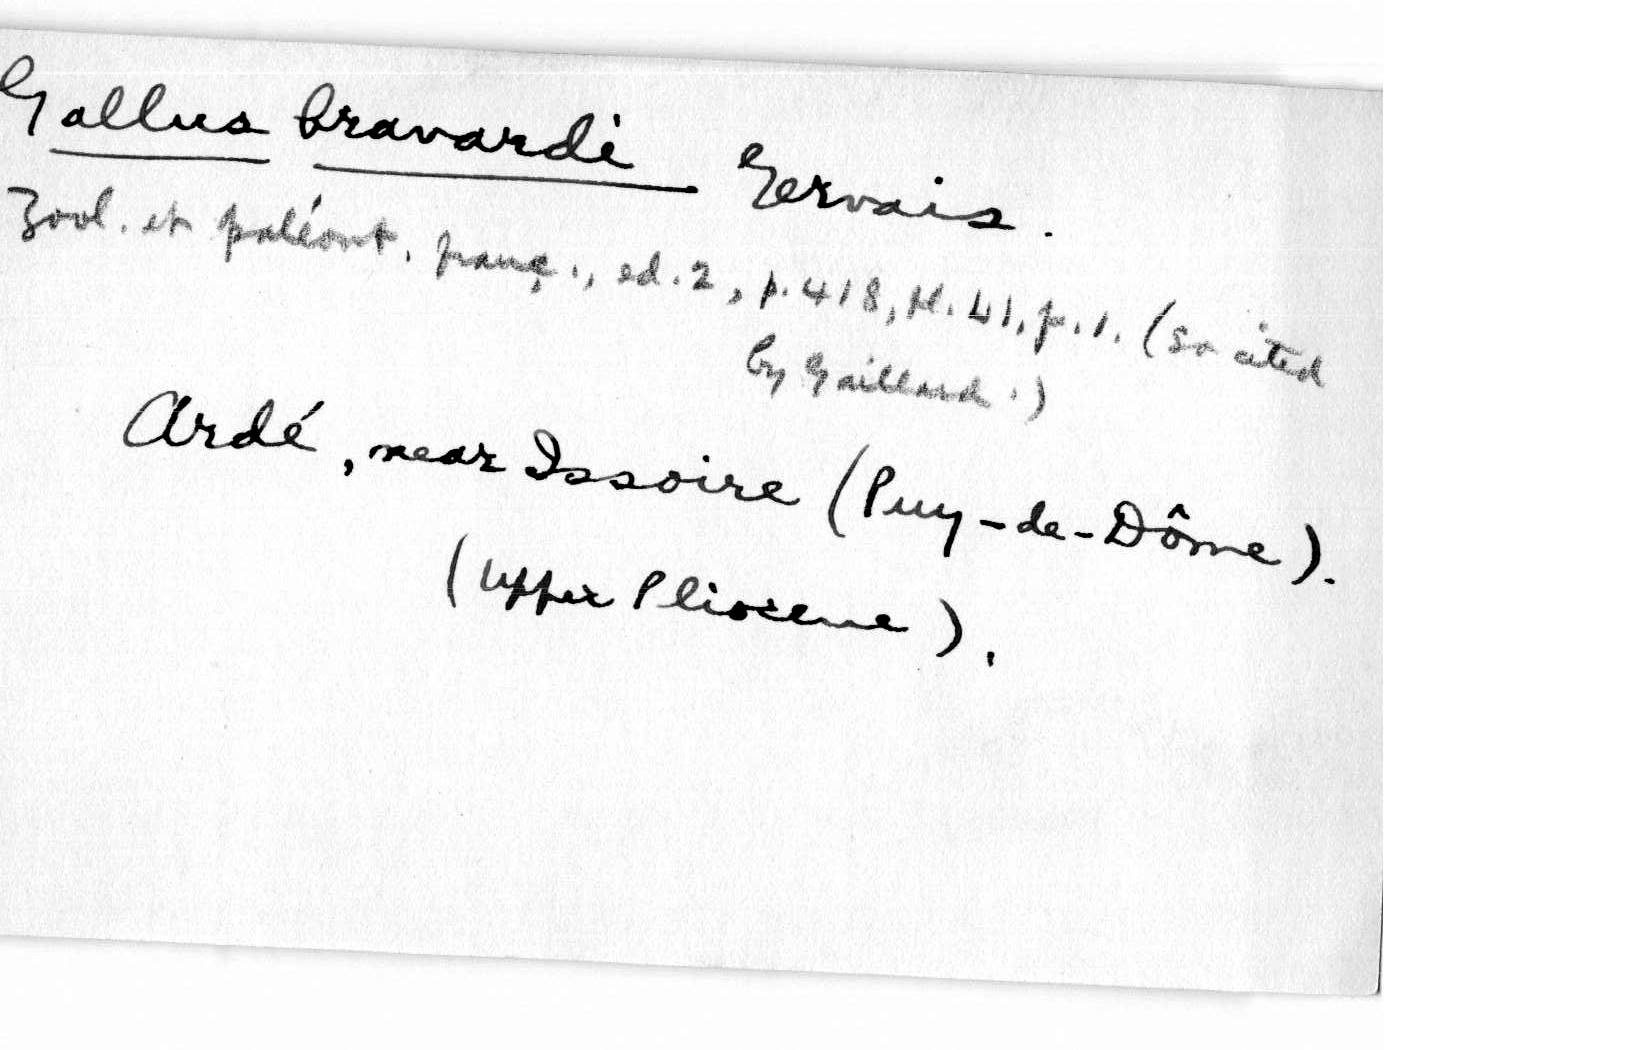 Gallus bravardi Gervais.
Zool. et paléont. franç., ed. 2, p. 418, pl. 41, f. 1. (So cited
by Gaillard.)
Ardé, near Issoire (Puy-de-Dôme).
(Upper Pliocene).